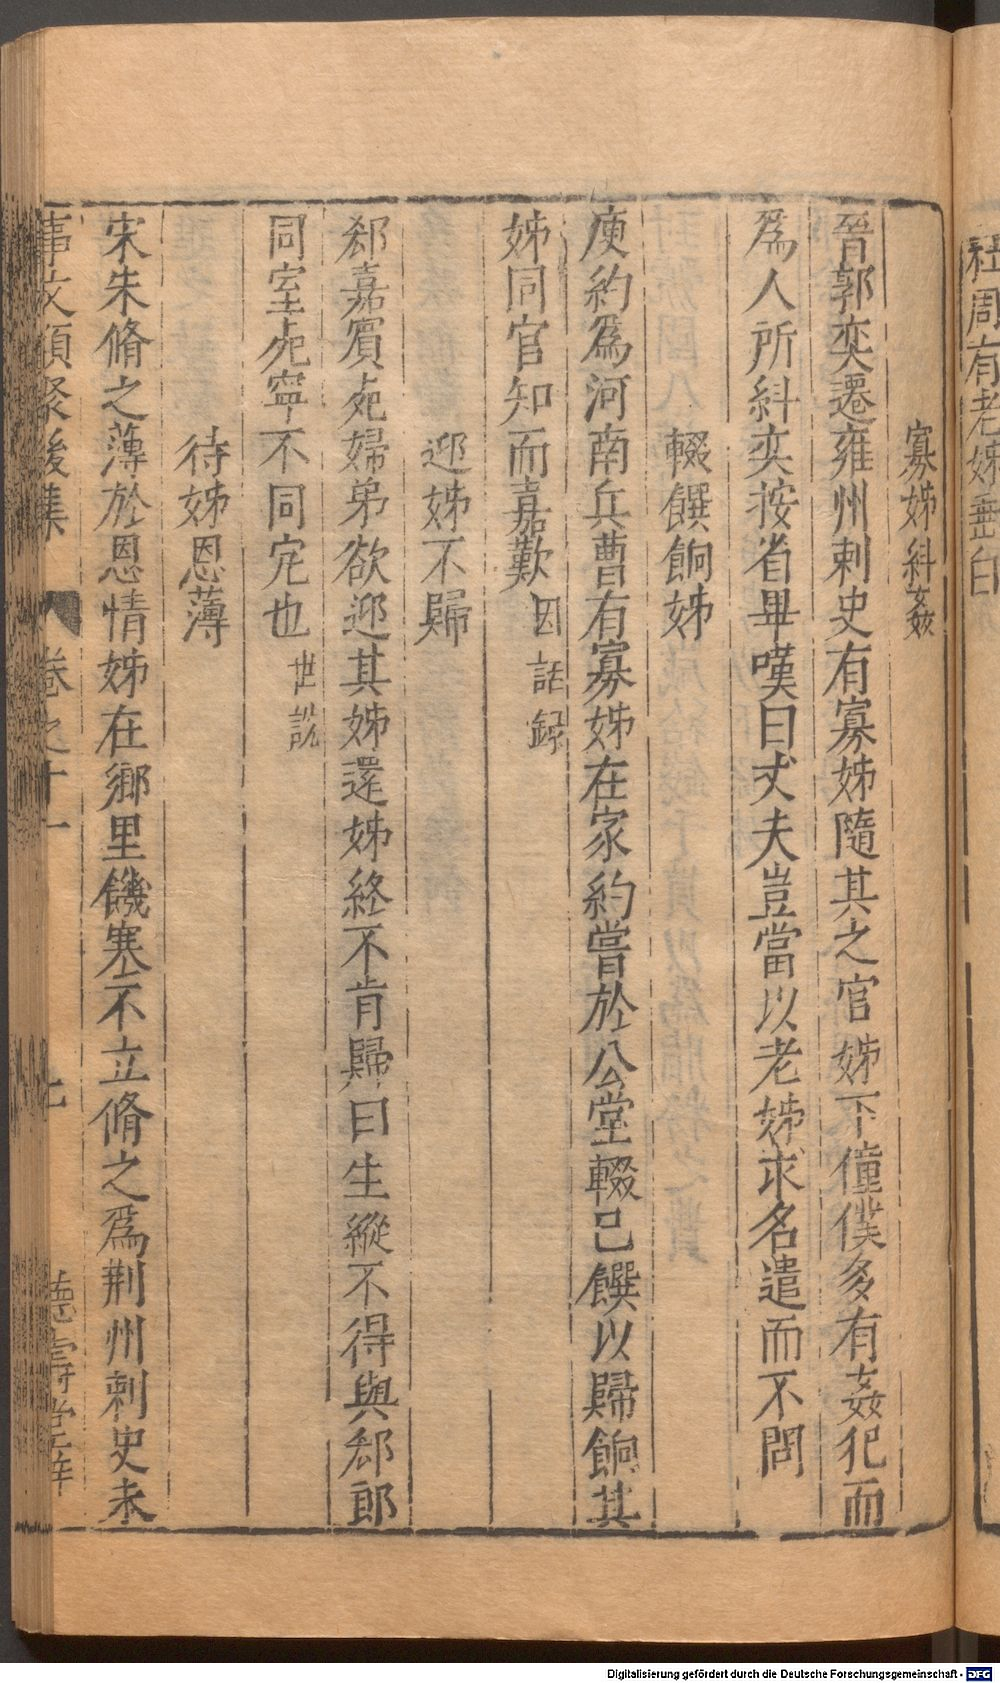 社周有老姊
寡姊糾姦
晉郭奕遷雍州刺史有寡姊隨其之官姊下僮僕多有姦犯而
爲人所糾奕按省畢嘆曰丈夫豈當以老姊求名遣而不問
輟饌餉姊
庾約爲河南兵曹有寡姊在家約嘗於公堂輟己饌以歸餉其
姊同官知而嘉歎因話録
迎姊不歸
郄嘉賓𣦸婦弟欲迎其姊還姊終不肯歸曰生縱不得與郄郎
同室𣦸寧不同穴也世說
待姊恩薄
宋朱脩之薄於恩情姊在鄉里饑寒不立脩之爲荆州刺史未
事文類聚後集 卷之十一 七 德壽堂梓
Digitalisierung gefördert durch die Deutsche Forschungsgemeinschaft - DFG